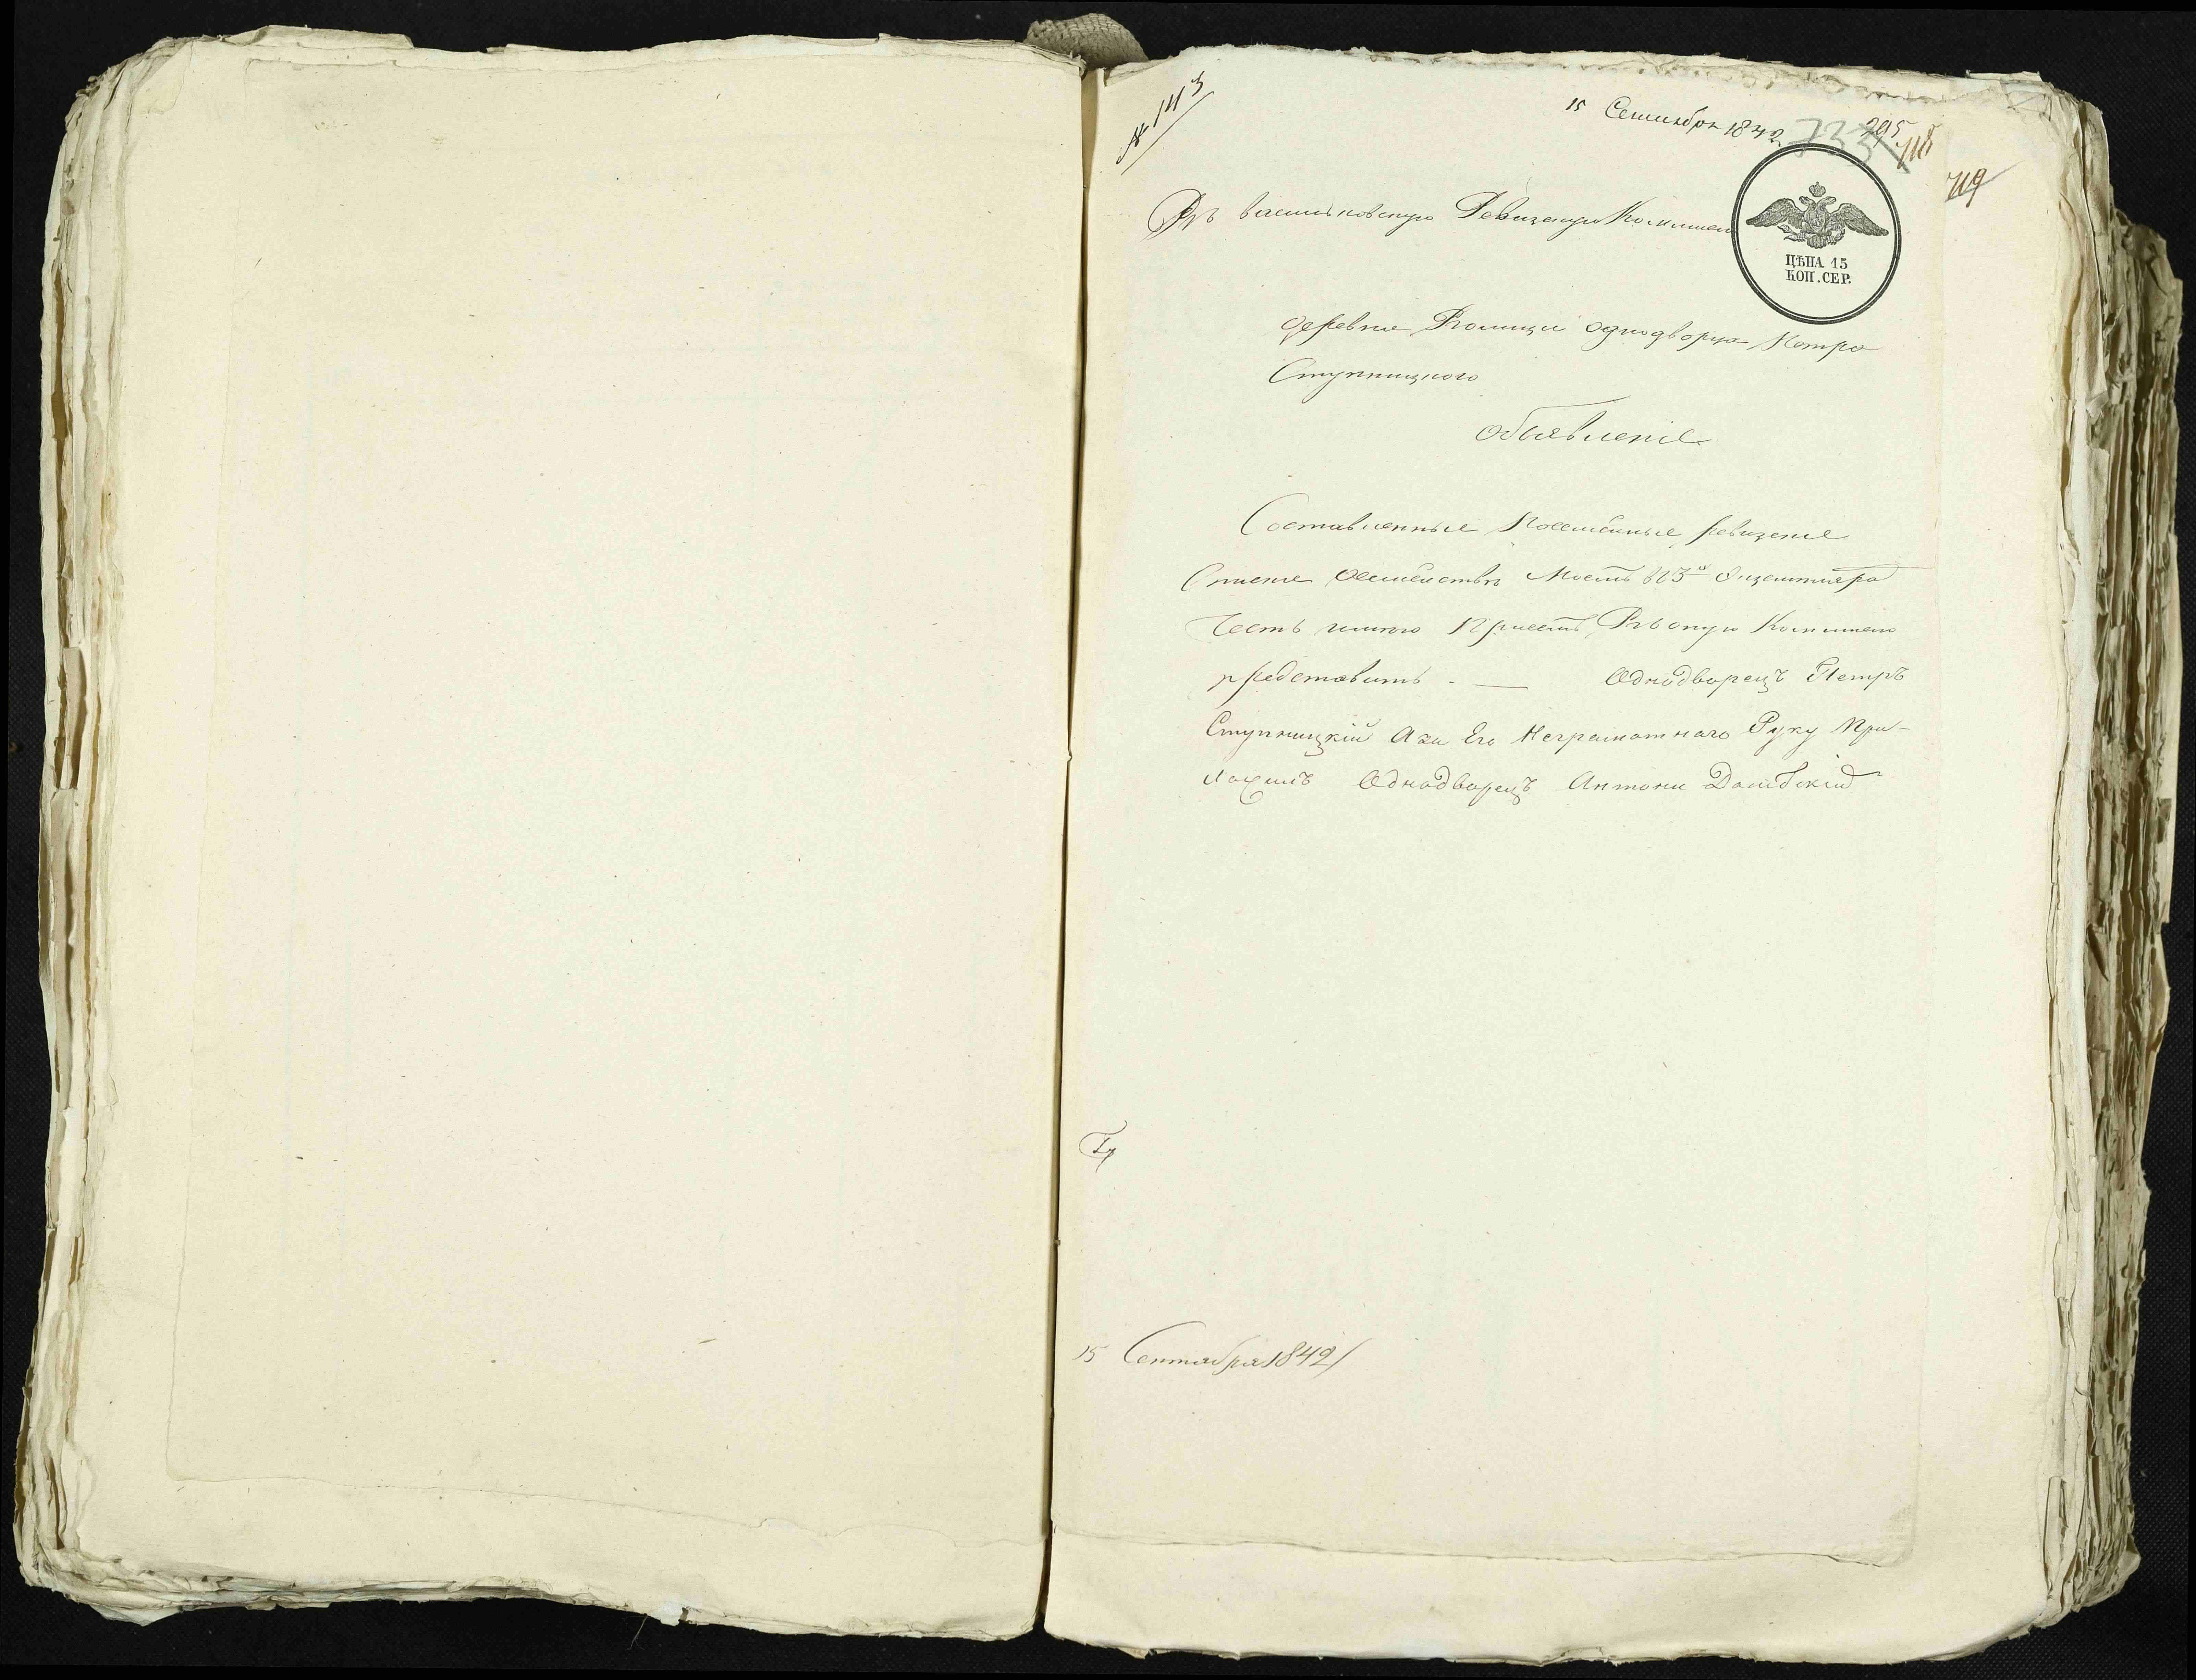 № 143
15 Сентября 1842
295
733
718
719
Въ васильковскую Ревизскую Коммисию
ЦѢНА 15
КОП. СЕР.
деревни одноворца Петра
Ступницкого
Объявленіе
Составленные Посемейные ревизские
Списке въ
Честь имею При семъ Въ оную Коммисию
представить. — Однодворецъ Петръ
Ступницкій Аза Его Неграмотнаго Руку При-
ложилъ Однодворецъ Антони
15 Сентября 1842